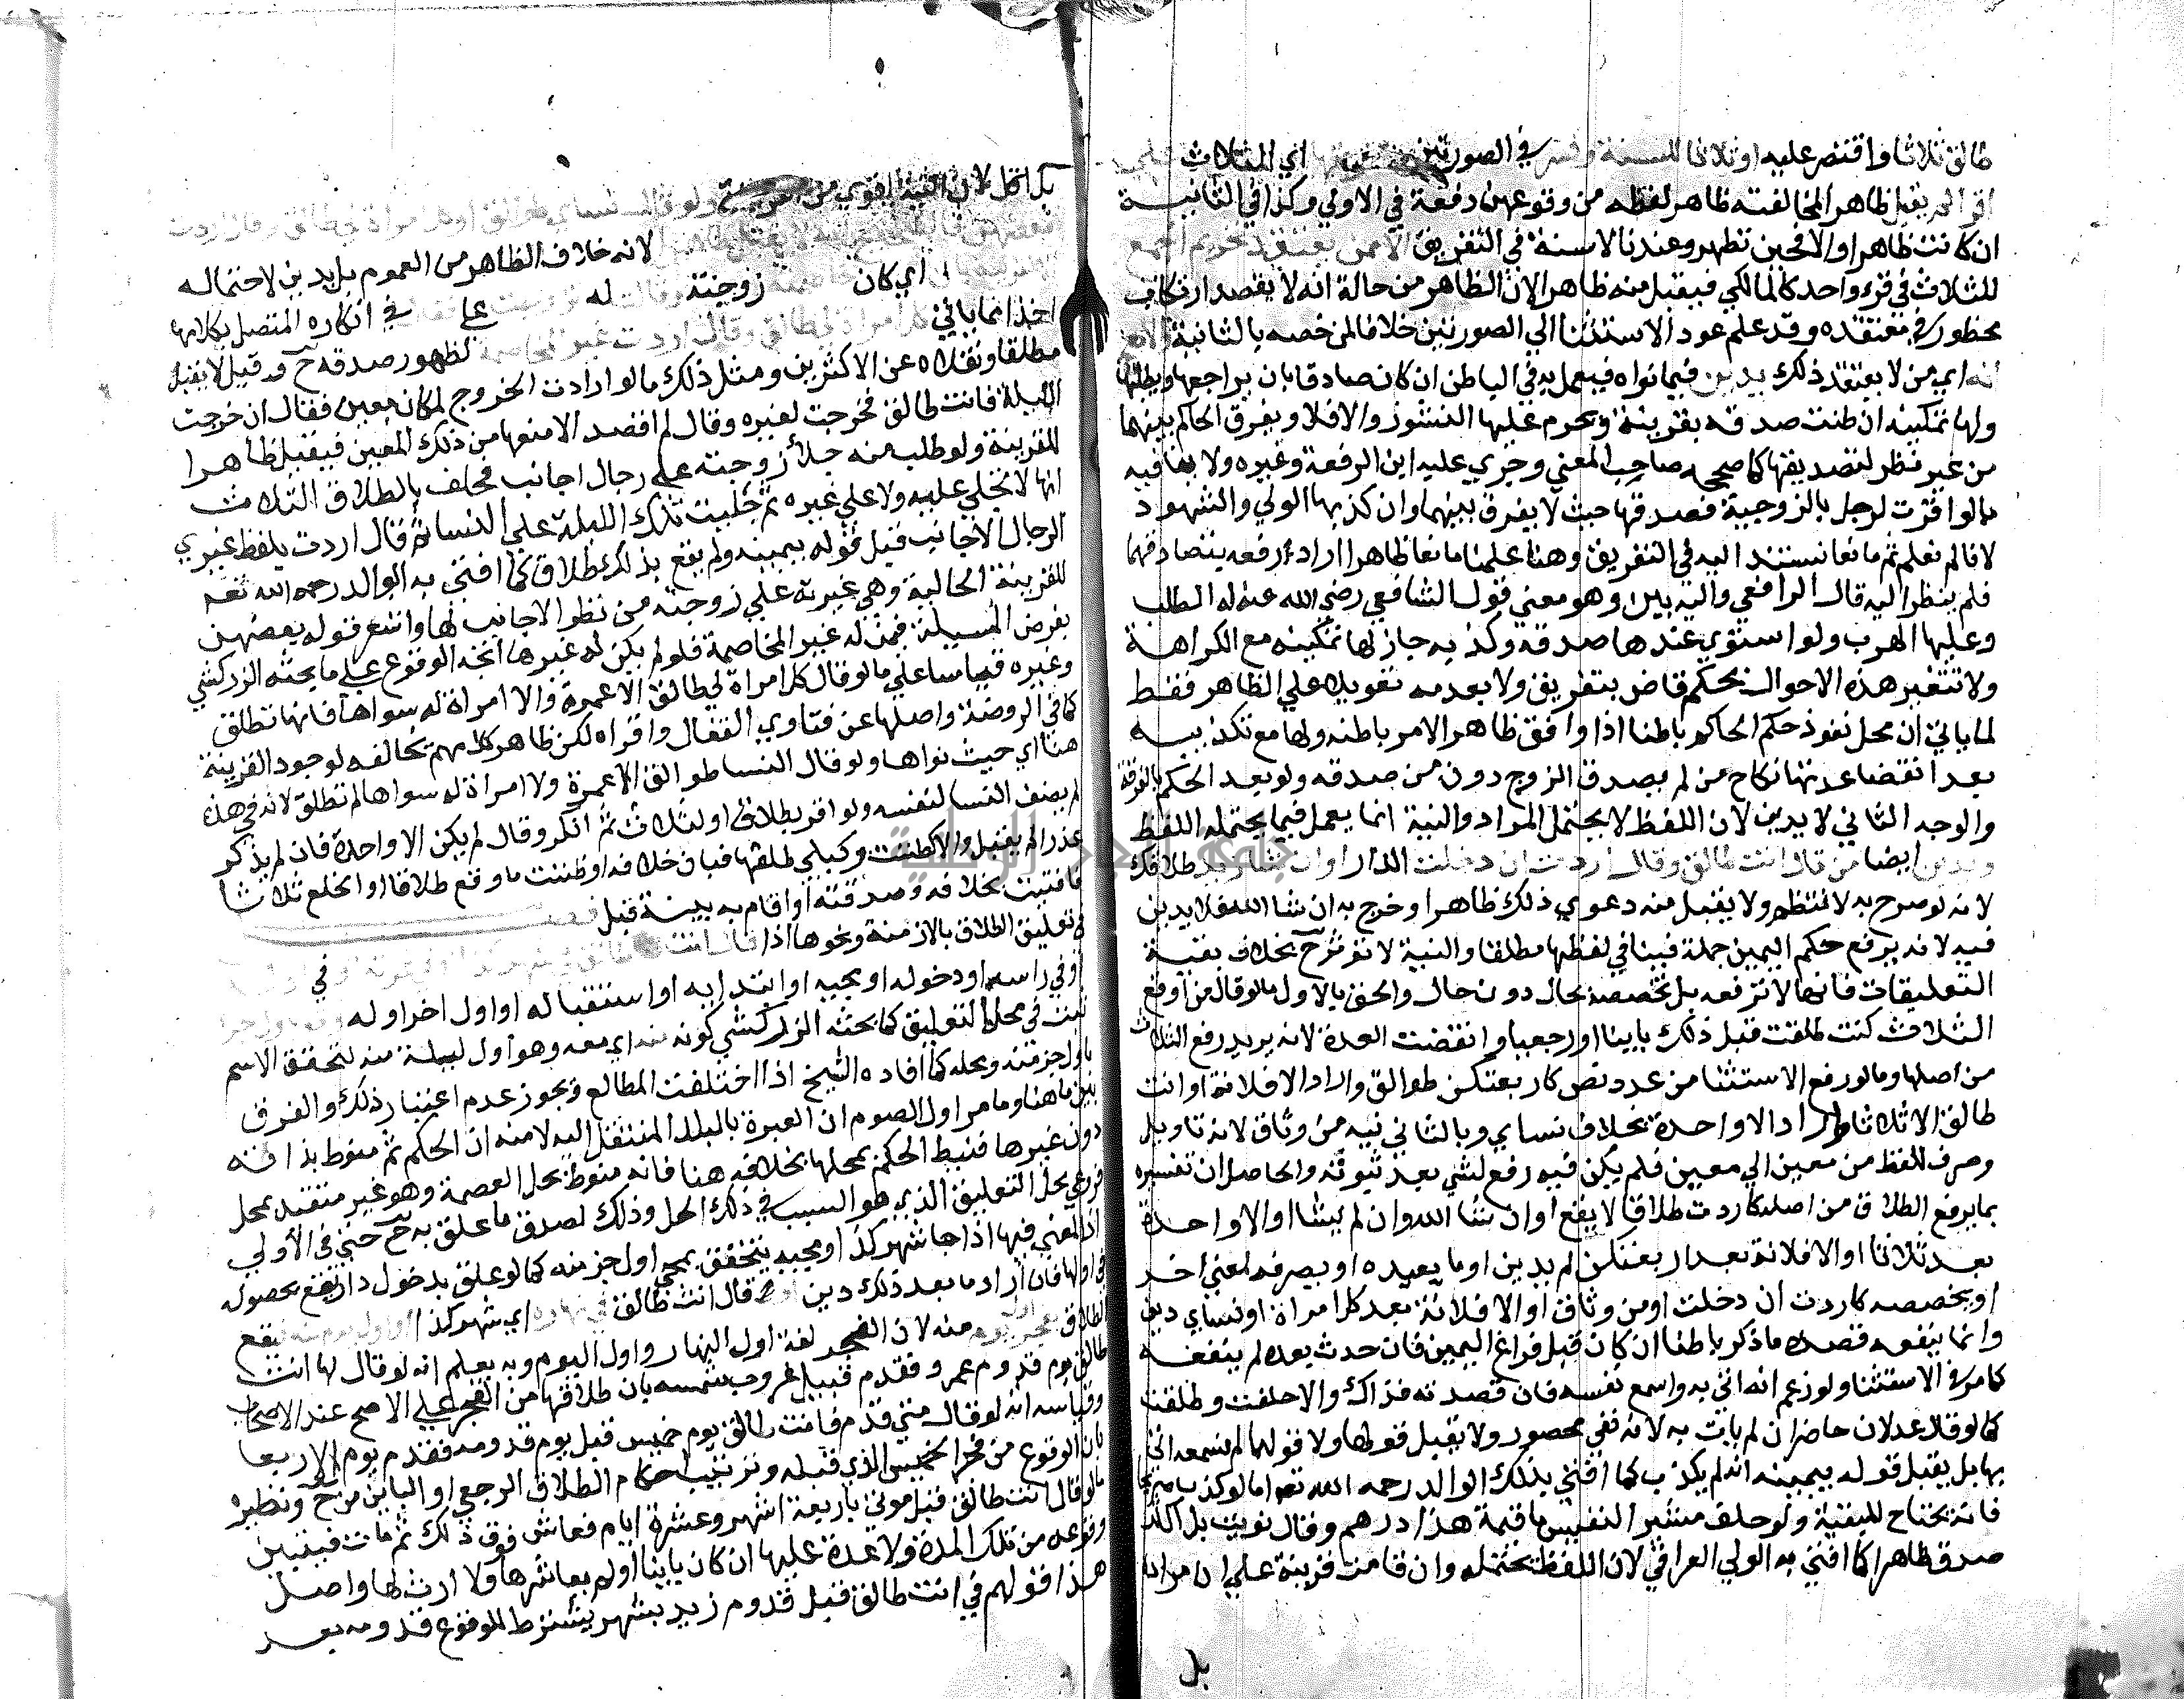 طالق ثلاثا واقتصر عليه او ثلاثا للسنة وفسر في الصورتين اي الثلاث على
اقرا لم يقبل ظاهرا لمخالفته ظاهر لفظه من وقوعهن دفعة في الاولي وكذا في الثانية
ان كانت طاهرا والا فحين تطهر وعندنا لا سنة في التفريق الا ممن يعتقد تحريم الجمع
للثلاث في قرء واحد كالمالكي فيقبل منه ظاهرا لان الظاهر من حاله انه لا يقصد ارتكاب
محظور في معتقده وقد علم عود الاستثنا الي الصورتين خلافا لمن خصه بالثانية
انه اي من لا يعتقد ذلك يدين فيما نواه فيعمل به في الباطن ان كان صادقا بان يراجعها ويطلبها
ولها تمكينه ان ظنت صدقه بقرينة ويحرم عليها النشوز والا فلا ويفرق الحاكم بينهما
من غير نظر لتصديقها كما صححه صاحب المعني وجري عليه ابن الرفعة وغيره ولا ينافيه
ما لو اقرت لرجل بالزوجية فصدقها حيث لا يفرق بينهما وان كذبها الولي والشهود
لانا لم نعلم ثم مانعا نستند اليه في التفريق وهنا علمنا مانعا ظاهرا اراد رفعه بتصادقهما
فلم ينظر اليه قال الرافعي واليه يبين وهو معني قول الشافعي رضي الله عنه له الطلب
وعليها الهرب ولو استوي عندها صدقه وكذبه جاز لها تمكينه مع الكراهة
ولا تتغير هذه الاحوال بحكم قاض بتفريق ولا بعدمه تعويلا علي الظاهر فقط
لما ياتي ان محل نفوذ حكم الحاكم باطنا اذا وافق ظاهر الامر باطنه ولها مع تكذيبه
بعد انقضا عدتها نكاح من لم يصدق الزوج دون من صدقه ولو بعد الحكم بالفرقة
والوجه الثاني لا يدين لان اللفظ لا يحتمل المراد والنية انما يعمل فيما يحتمله اللفظ
ويدين ايضا من قال انت طالق وقال اردت ان دخلت الدار او ان شا زيد طلاقك
لانه لو صرح به لانتظم ولا يقبل منه دعوي ذلك ظاهرا وخرج به ان شا الله فلا يدين
فيه لانه يرفع حكم اليمين جملة فينافي لفظها مطلقا والنية لا تؤثر ح بخلاف بقية
التعليقات فانها لا ترفعه بل تخصصه بحال دون حال والحق بالاول ما لو قال من اوقع
الثلاث كنت طلقت قبل ذلك باينا او رجعيا وانقضت العدة لانه يريد رفع الثلاث
من اصلها وما لو رفع الاستثنا من عدد نص كاربعتكن طوالق واراد الا فلانة او انت
طالق ثلاثا واراد الا واحدة بخلاف نساي وبالثاني نيه من وثاق لانه تاويل
وصرف للفظ من معين الي معين فلم يكن فيه رفع لشي بعد ثبوته والحاصل ان تفسيره
بما يرفع الطلاق من اصله كاردت طلاقا لا يقع او ان شا الله او ان لم يشا او الا واحدة
بعد ثلاثا او الا فلانة بعد اربعتكن لم يدين او ما يقيده او يصرفه لمعني اخر
او يخصصه كاردت ان دخلت او من وثاق او الا فلانة بعد كل امراة او نساي دين
وانما ينفعه قصده ما ذكر باطنا ان كان قبل فراغ اليمين فان حدث بعده لم ينفعه
كما مر في الاستثنا ولو زعم انه اتي به واسمع نفسه فان قصدته فذاك والا حلفت وطلقت
كما لو قال عدلان حاضران لم يات به لانه نفي محصور ولا يقبل قولها ولا قولهما لم نسمعه اتي
بها بل يقبل قوله بيمينه انه لم يكذب كما افتي بذلك الوالد رحمه الله تعه اما لو كذب صريحا
فانه يحتاج للبينة ولو حلف مشير النفيس ما قيمة هذا درهم وقال نويت بل اكثر
صدق ظاهرا كما افتي به الولي العراقي لان اللفظ يحتمله وان قامت قرينة علي ان مراده
بل
بل اقل لان النية اقوي من القرينة ولو قال نساي طوالق او كل امراة لي طالق وقال اردت
بعضهن
لانه خلاف الظاهر من العموم بل يدين لاحتماله
اي كان زوجته له علي في انكاره المتصل بكلامها
اخذا مما ياتي كل امراة لي طالق وقال اردت غير المخاصمة لظهور صدقه ح وقيل لا يقبل
مطلقا ونقلاه عن الاكثرين ومثل ذلك ما لو ارادت الخروج لمكان معين فقال ان خرجت
الليلة فانت طالق فخرجت لغيره وقال لم اقصد الا منعها من ذلك المعين فيقبل ظاهرا
للقرينة ولو طلب منه جلا زوجته علي رجال اجانب فحلف بالطلاق الثلاث
انها لا تجلي عليه ولا علي غيره ثم جليت تلك الليلة علي النسا ثم قال اردت بلفظ غيري
الرجال الاجانب قبل قوله بيمينه ولم يقع بذلك طلاق كما افتي به الوالد رحمه الله تعه
للقرينة الحالية وهي غيرته علي زوجته من نظر الاجانب لها وامتنع قوله بعضهن
بفرض المسيلة فيمن له غير المخاصمة فلو لم يكن له غيرها اتجه الوقوع علي ما بحثه الزركشي
وغيره قياسا علي ما لو قال كل امراة لي طالق الا عمرة ولا امراة له سواها فانها تطلق
كما في الروضة واصلها عن فتاوي القفال واقراه لكن ظاهر كلامهم يخالفه لوجود القرينة
هنا اي حيث نواها ولو قال النسا طوالق الا عمرة ولا امراة له سواها لم تطلق لانه في هذه
لم يضف النسا لنفسه ولو اقر بطلاق او بثلاث ثم انكر وقال لم يكن الا واحدة فان لم يذكر
عذرا لم يقبل والا كظننت وكيلي طلقها فبان خلافه او ظننت ما وقع طلاقا او الخلع ثلاثا
فافتيت بخلافه وصدقته او اقام به بينة قبل
في تعليق الطلاق بالازمنة ونحوها اذا قال انت طالق في
او في راسه او دخوله او مجيه او ابتدايه او استقباله او اول اخر اوله
ثبت في محل التعليق كما بحثه الزركشي كونه منه اي معه وهو اول ليلة منه لتحقق الاسم
باول جز منه ومحله كما افاده الشيخ اذا اختلفت المطالع ويجوز عدم اعتبار ذلك والفرق
بين ما هنا وما مر اول الصوم ان العبرة بالبلد المنتقل اليه لا منه ان الحكم ثم منوط بذاته
دون غيرها فنيط الحكم بمحلها بخلافه هنا فانه منوط بحل العصمة وهو غير متقيد بمحل
فروعي محل التعليق الذي هو السبب في ذلك الحل وذلك لصدق ما علق به ح حتي في الاولي
اذ المعني فيها اذا جا شهر كذا ومجيه يتحقق بمجي اول جز منه كما لو علق بدخول دار يقع بحصوله
في اولها فان اراد ما بعد ذلك دين قال انت طالق في نهاره اي شهر كذا او اول يوم منه فيقع
الطلاق بفجر اول يوم منه لان الفجر لغة اول النهار واول اليوم وبه يعلم انه لو قال لها انت
طالق يوم قدوم عمرو فقدم قبيل غروب شمسه بان طلاقها من الفجر علي الاصح عند الاصحاب
وقياسه انه لو قال متي قدم فانت طالق يوم خميس قبل يوم قدومه فقدم يوم الاربعا
بان الوقوع من فجر الخميس الذي قبله وترتيب احكام الطلاق الرجعي او الباين من ح ونظيره
ما لو قال انت طالق قبل موتي باربعة اشهر وعشرة ايام فعاش فوق ذلك ثم مات فيتبين
وقوعه من تلك المدة ولا عدة عليها ان كان باينا او لم يعاشرها ولا ارث لها واصل
هذا قولهم في انت طالق قبل قدوم زيد بشهر يشترط للوقوع قدومه بعد